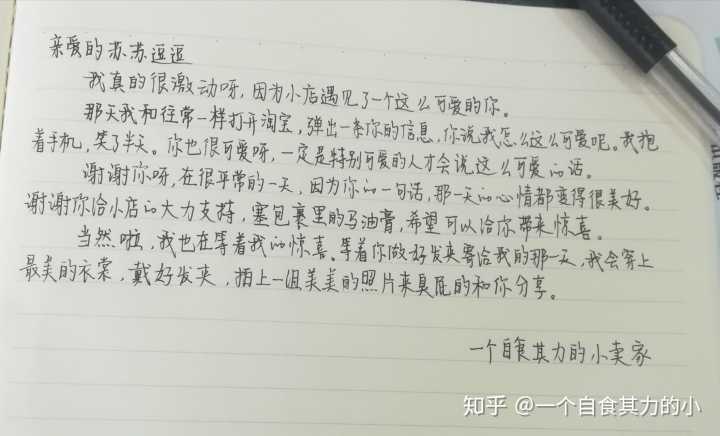 亲爱的苏苏逗逗
我真的很激动呀,因为小店遇见了一个这么可爱的你。
那天我和往常一样打开淘宝,弹出一条你的信息,你说我怎么这么可爱呢。我抱
着手机,笑了半天。你也很可爱呀,一定是特别可爱的人才会说这么可爱的话。
谢谢你呀,在很平常的一天,因为你的一句话,那一天的心情都变得很美好。
谢谢你给小店的大力支持,塞包裹里的马油膏,希望可以给你带来惊喜。
当然啦,我也在等着我的惊喜。等着你做好发夹寄给我的那一天,我会穿上
最美的衣裳,戴好发夹,拍上一组美美的照片来臭屁的和你分享。
一个自食其力的小卖家
知乎 @一个自食其力的小